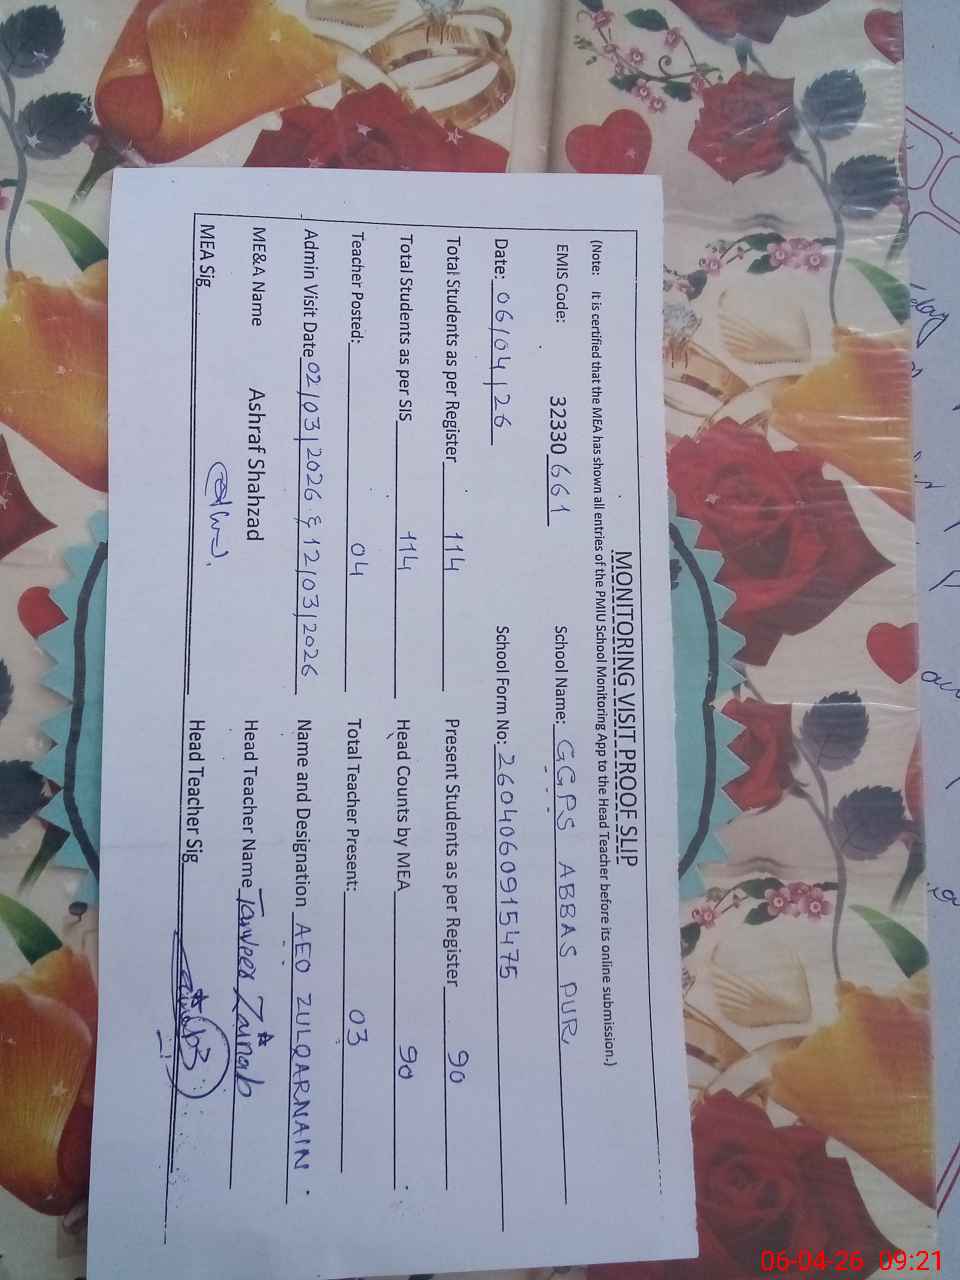 MONITORING VISIT PROOF SLIP
(Note: It is certified that the MEA has shown all entries of the PMIU School Monitoring App to the Head Teacher before its online submission.)
EMIS Code: 32330661 School Name: GGPS ABBAS PUR
Date: 06/04/26 School Form No: 2604060915475
Total Students as per Register 114 Present Students as per Register 90
Total Students as per SIS 114 Head Counts by MEA 90
Teacher Posted: 04 Total Teacher Present: 03
Admin Visit Date 02/03/2026 & 12/03/2026 Name and Designation AEO ZULQARNAIN.
ME&A Name Ashraf Shahzad Head Teacher Name Tanveer Zainab
MEA Sig Head Teacher Sig
06-04-26 09:21